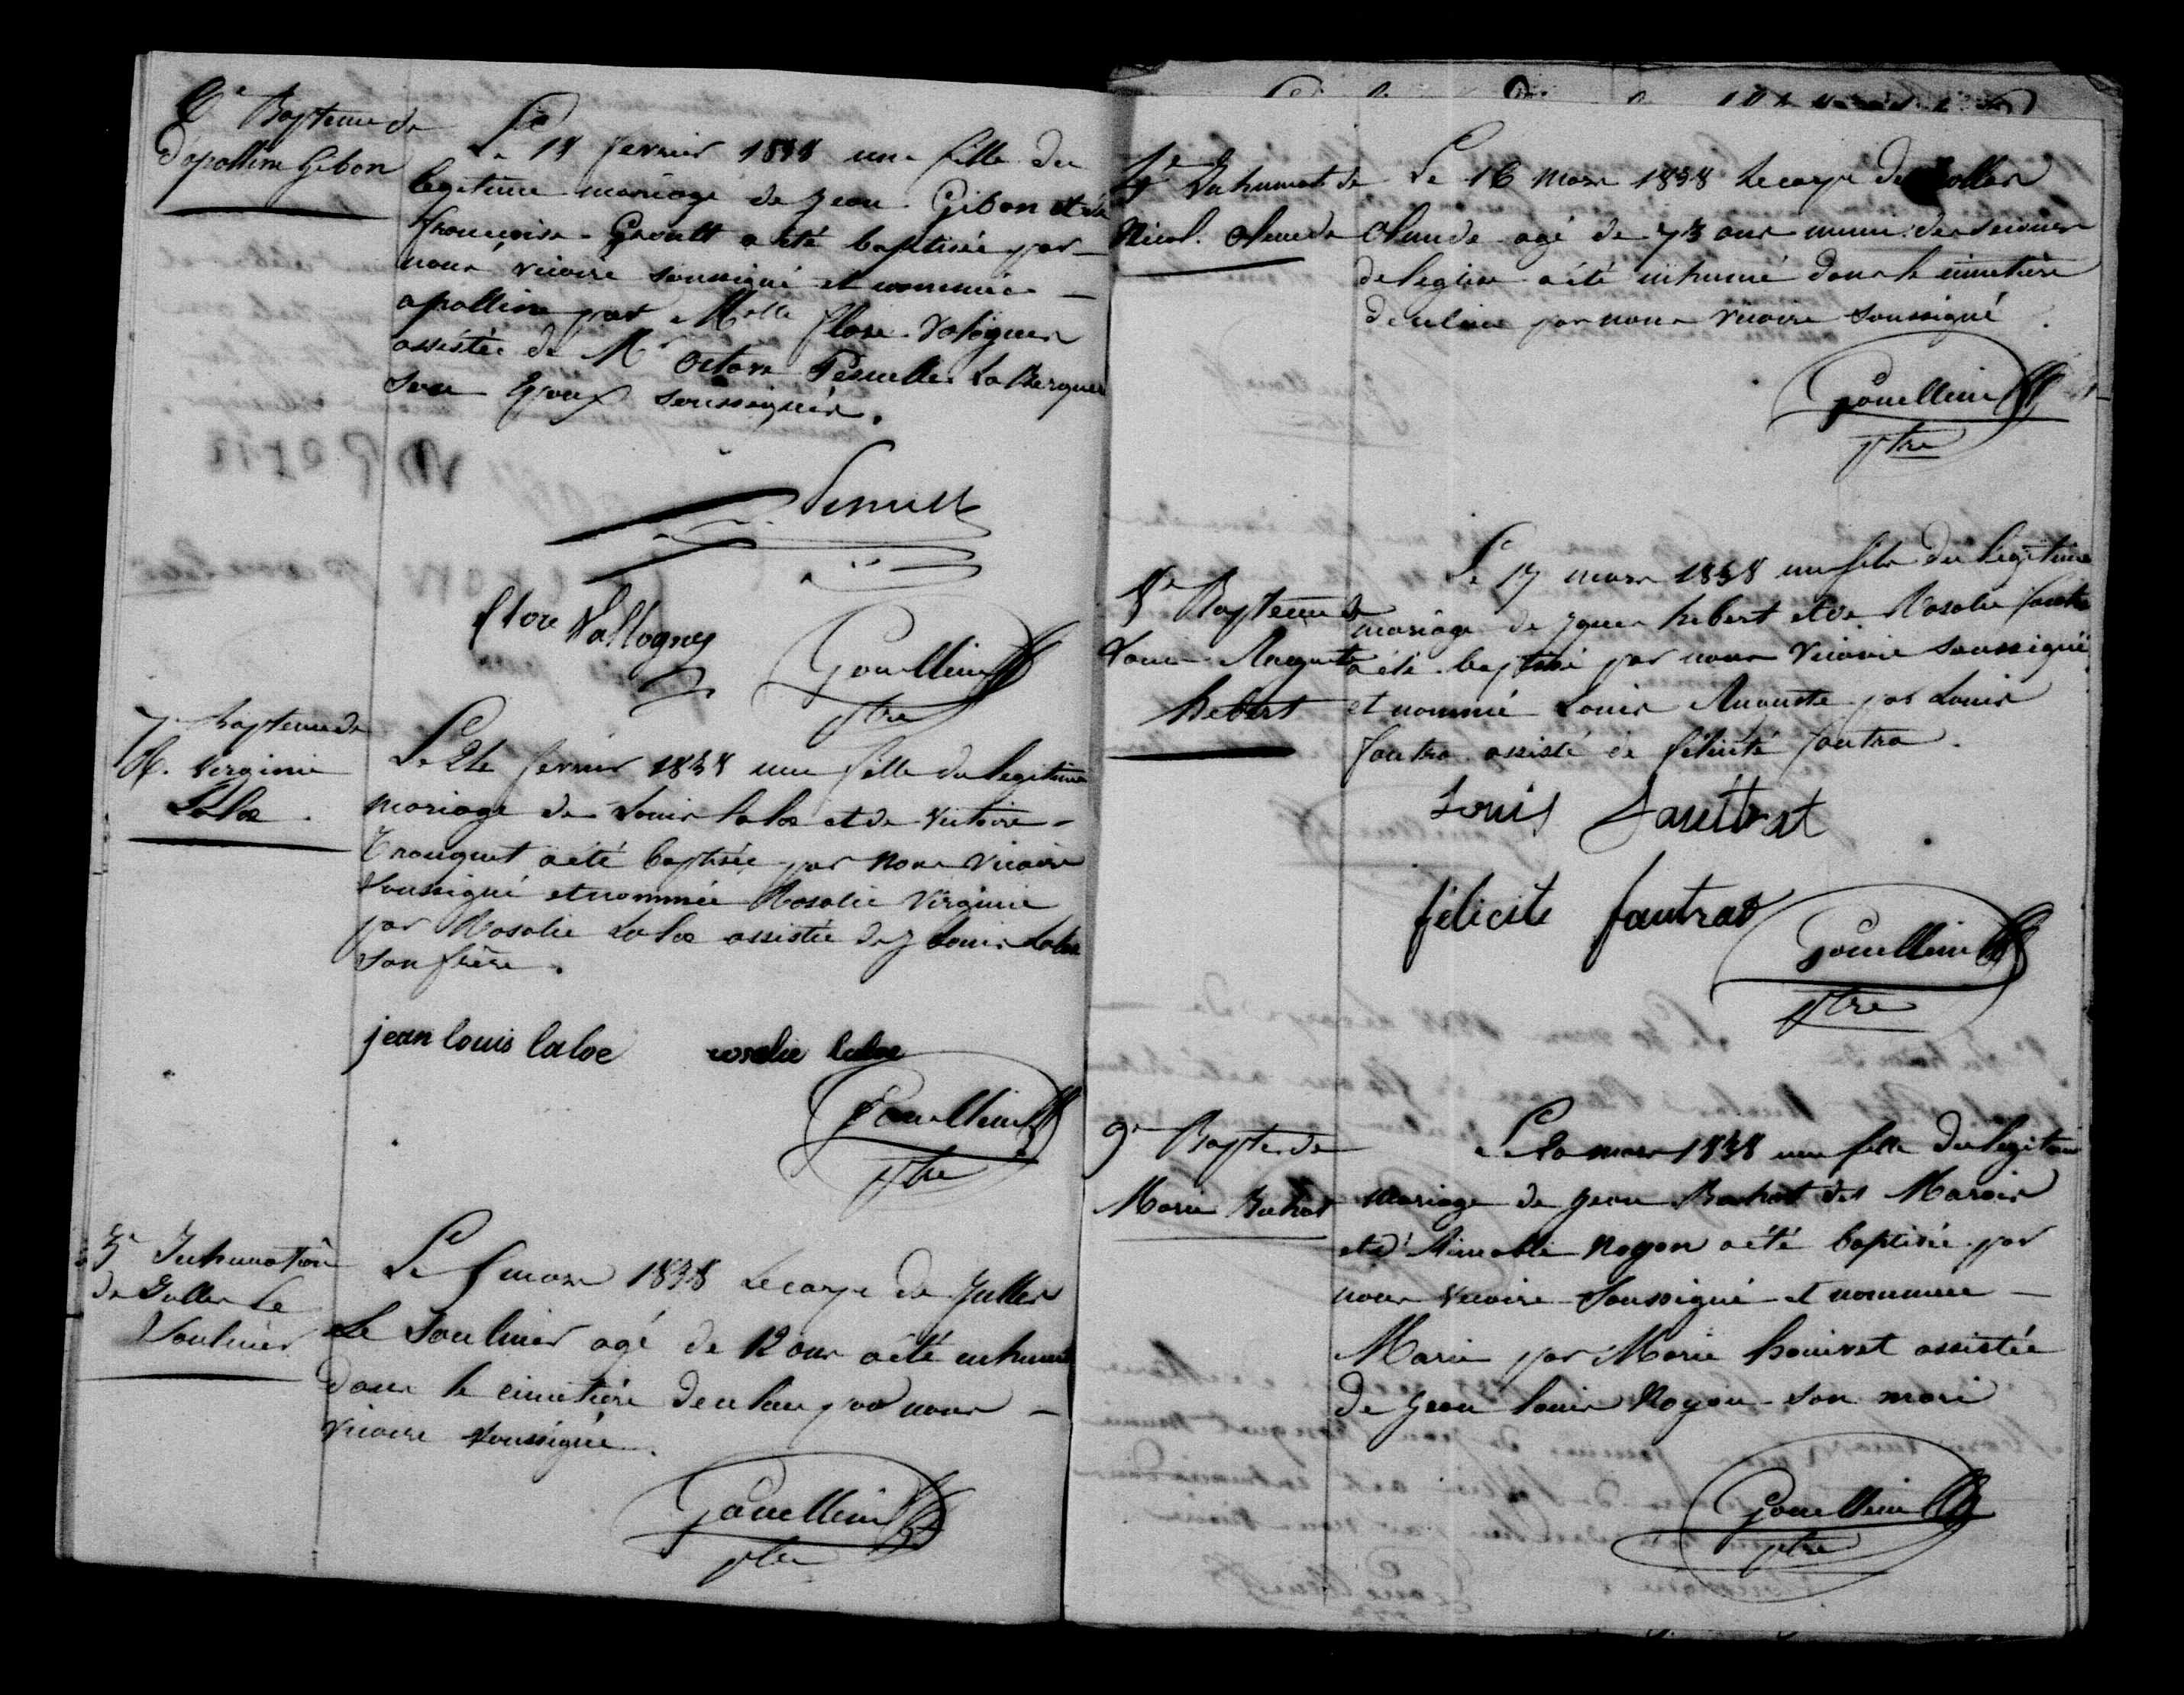 6e Baptême de
d'apolline Gibon
Le 18 fevrier 1838 une fille du
legitime mariage de jean Gibon et de
françoise Groult a été baptisée par
nous vicaire soussigné et nommée
apolline par Melle flore Valognes
assistée de Mr octave Pesnelle
son Epoux soussignés.
flore Vallognes
Gouellain
ptre
7e baptême de
R. virginie
Laloe
Le 24 fevrier 1838 une fille du legitime
mariage de Louis laloe et de victoire
Trouquet a été baptisée par nous vicaire
soussigné et nommée Rosalie Virginie
par Rosalie Laloe assistée de j louis Laloe
son frère.
jean louis laloe rosalie laloe
Gouellain
ptre
3e Inhumation
de Le
Soulinier
Le mars 1838 le corps de
Le Soulinier agé de 12 ans a été inhumé
dans le cimetière de ce lieu par nous
vicaire soussigné.
Gouellain
ptre
4e Inhumat. de
Nicol. claude
Le 16 mars 1838 le corps de
claude agé de 73 ans muni des
de l'eglise a été inhumé dans le cimetière
de ce lieu par nous vicaire soussigné
Gouellain
ptre
8e Baptême de
Louis Auguste
hebert
Le 17 mars 1838 un fils du legitime
mariage de hebert et de Rosalie fautra
a été baptisé par nous vicaire soussigné
et nommé Louis Auguste par Louis
fautra assisté de félicité fautra.
Louis fauttrat
félicité fautrat
Gouellain
ptre
9e Bapte de
Marie Buhot
Le 20 mars 1838 une fille du legitime
mariage de jean Buhot des Marais
et d'Aimable Noyon a été baptisée par
nous vicaire soussigné et nommée
Marie par Marie houivet assistée
de jean louis Noyon son mari
Gouellain
ptre